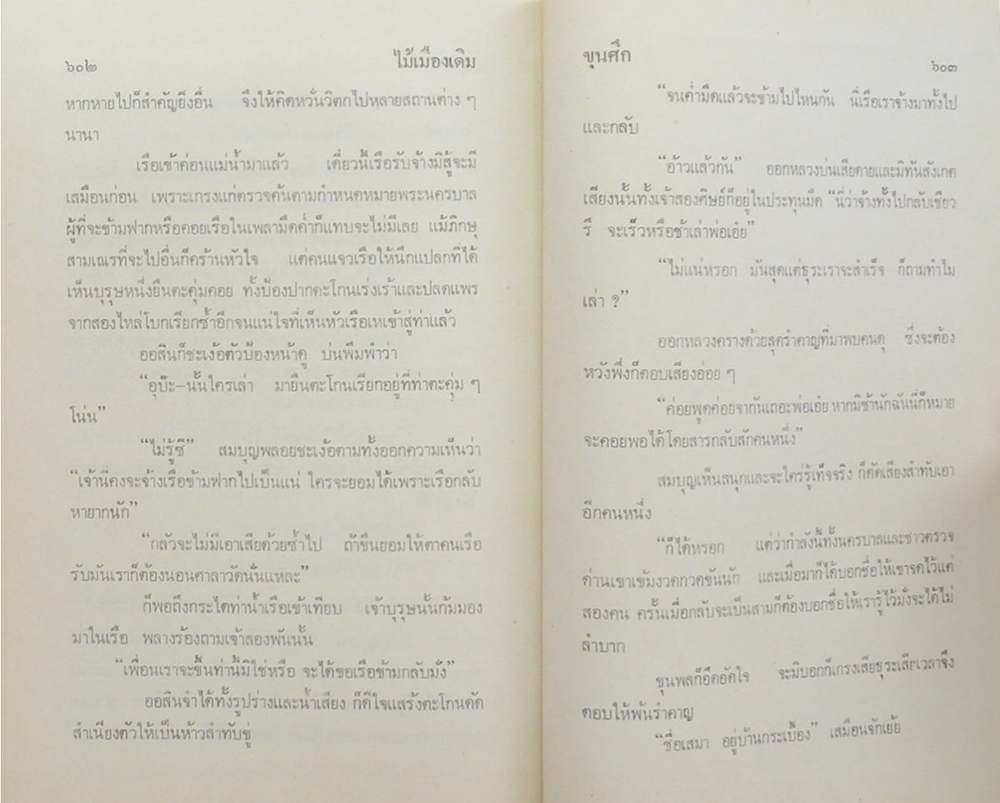 ๖๐๒ ไม้เมืองเดิม
หากหายไปก็สำคัญยิ่งอื่น จึงให้คิดหวั่นวิตกไปหลายสถานต่าง ๆ
นานา
เรือเข้าค่อนแม่น้ำมาแล้ว เดี๋ยวนี้เรือรับจ้างมิสู้จะมี
เสมือนก่อน เพราะเกรงแก่ตรวจค้นตามกำหนดหมายพระนครบาล
ผู้ที่จะข้ามฟากหรือคอยเรือในเพลามืดค่ำก็แทบจะไม่มีเลย แม้ภิกษุ
สามเณรที่จะไปอื่นก็คร้านหัวใจ แต่คนแจวเรือให้นึกแปลกที่ได้
เห็นบุรุษหนึ่งยืนตะคุ่มคอย ทั้งป้องปากตะโกนเร่งเร้าและปลดแพร
จากสองไหล่โบกเรียกซ้ำอีกจนแน่ใจที่เห็นหัวเรือเหเข้าสู่ท่าแล้ว
ออสินก็ชะเง้อตัวป้องหน้าดู บ่นพึมพำว่า
“อุบ๊ะ–นั้นใครเล่า มายืนตะโกนเรียกอยู่ที่ท่าตะคุ่ม ๆ
โน่น”
“ไม่รู้ซี” สมบุญพลอยชะเง้อตามทั้งออกความเห็นว่า
“เจ้านี่คงจะจ้างเรือข้ามฟากไปเป็นแน่ ใครจะยอมได้เพราะเรือกลับ
หายากนัก”
“กลัวจะไม่มีเอาเสียด้วยซ้ำไป ถ้าขืนยอมให้ตาคนเรือ
รับมันเราก็ต้องนอนศาลาวัดนั่นแหละ”
ก็พอถึงกระไดท่าน้ำเรือเข้าเทียบ เจ้าบุรุษนั้นก้มมอง
มาในเรือ พลางร้องถามเจ้าสองพันนั้น
“เพื่อนเราจะขึ้นท่านี้มิใช่หรือ จะได้ขอเรือข้ามกลับมั่ง”
ออสินจำได้ทั้งรูปร่างและน้ำเสียง ก็ดีใจแสร้งตะโกนดัด
สำเนียงตัวให้เป็นห้าวสำทับขู่
ขุนศึก ๖๐๓
“จนค่ำมืดแล้วจะข้ามไปไหนกัน นี่เรือเราจ้างมาทั้งไป
และกลับ
“อ้าวแล้วกัน” ออกหลวงบ่นเสียดายและมิทันสังเกต
เสียงนั้นทั้งเจ้าสองศิษย์ก็อยู่ในประทุนมืด “นี่ว่าจ้างทั้งไปกลับเชียว
รึ จะเร็วหรือช้าเล่าพ่อเอ๋ย”
“ไม่แน่หรอก มันสุดแต่ธุระเราจะสำเร็จ ก็ถามทำไม
เล่า ?”
ออกหลวงครางด้วยสุดรำคาญที่มาพบคนดุ ซึ่งจะต้อง
หวังพึ่งก็ตอบเสียงอ่อย ๆ
“ค่อยพูดค่อยจากันเถอะพ่อเอ๋ย หากมิช้านักฉันนี่ก็หมาย
จะคอยพอได้โดยสารกลับสักคนหนึ่ง”
สมบุญเห็นสนุกและจะใคร่รู้เท็จจริง ก็ดัดเสียงสำทับเอา
อีกคนหนึ่ง
“ก็ได้หรอก แต่ว่ากำลังนี้ทั้งนครบาลและชาวตรวจ
ด่านเขาเข้มงวดกวดขันนัก และเมื่อมาก็ได้บอกชื่อให้เขาจดไว้แต่
สองคน ครั้นเมื่อกลับจะเป็นสามก็ต้องบอกชื่อให้เรารู้ไว้มั่งจะได้ไม่
ลำบาก
ขุนพลก็อึดอัดใจ จะมิบอกก็เกรงเสียธุระเสียเวลาจึง
ตอบให้พ้นรำคาญ
“ชื่อเสมา อยู่บ้านกระเบื้อง” เสมือนจักเย้ย